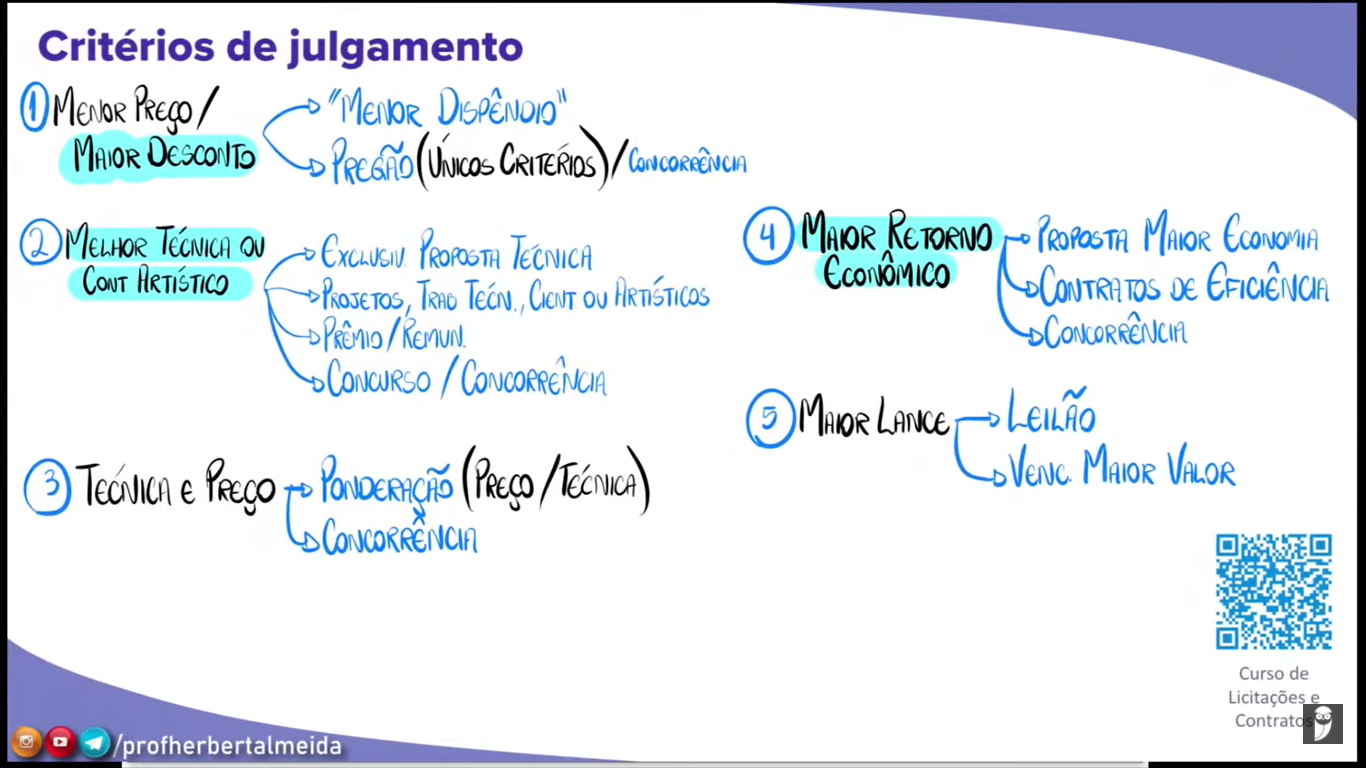 Critérios de julgamento
1 MENOR PREÇO /
MAIOR DESCONTO
"MENOR DISPÊNDIO"
PREGÃO (ÚNICOS CRITÉRIOS) / CONCORRÊNCIA
2 MELHOR TÉCNICA OU
CONT ARTÍSTICO
EXCLUSIV. PROPOSTA TÉCNICA
PROJETOS, TRAB TÉCN., CIENT OU ARTÍSTICOS
PRÊMIO / REMUN.
CONCURSO / CONCORRÊNCIA
3 TÉCNICA E PREÇO
PONDERAÇÃO (PREÇO / TÉCNICA)
CONCORRÊNCIA
4 MAIOR RETORNO
ECONÔMICO
PROPOSTA MAIOR ECONOMIA
CONTRATOS DE EFICIÊNCIA
CONCORRÊNCIA
5 MAIOR LANCE
LEILÃO
VENC. MAIOR VALOR
Curso de
Licitações e
Contratos
/profherbertalmeida